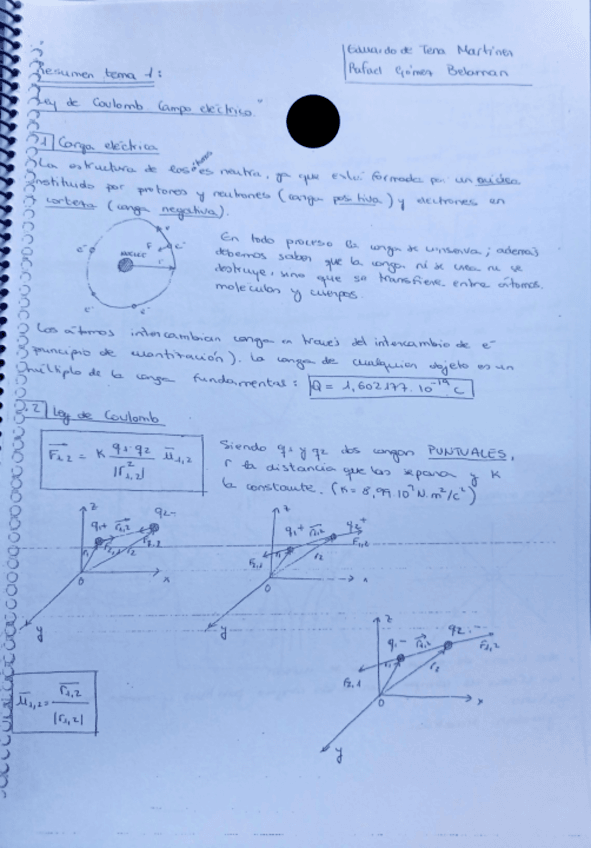 Eduardo de Tena Martínez
Rafael Gómez
Resumen tema 1:
Ley de Coulomb Campo eléctrico"
1 Carga eléctrica
La estructura de los átomos es neutra, ya que está formada por un núcleo
constituido por protones y neutrones (carga positiva) y electrones en
corteza (carga negativa).
En todo proceso la carga se conserva; además
debemos saber que la carga, ni se crea ni se
destruye, sino que se transfiere entre átomos,
moléculas y cuerpos.
NÚCLEO
r
F
e-
e-
e-
e-
Los átomos intercambian carga a través del intercambio de e-
(principio de cuantización). La carga de cualquier objeto es un
múltiplo de la carga fundamental: Q = 1,602177 · 10^-19 C
1.2 Ley de Coulomb
F1,2 = K q1·q2 / |r1,2|² u1,2
Siendo q1 y q2 dos cargas PUNTUALES,
r la distancia que las separa y K
la constante. (K = 8,99·10⁹ N·m²/C²)
z q2-
q1+ r1,2
F2,1 F1,2
r1 r2
0 x
y
z q2+
q1+ r1,2
F2,1 F1,2
r1 r2
0 x
y
z q2-
q1- r1,2 F1,2
F2,1 r1 r2
0 x
y
u1,2 = r1,2 / |r1,2|